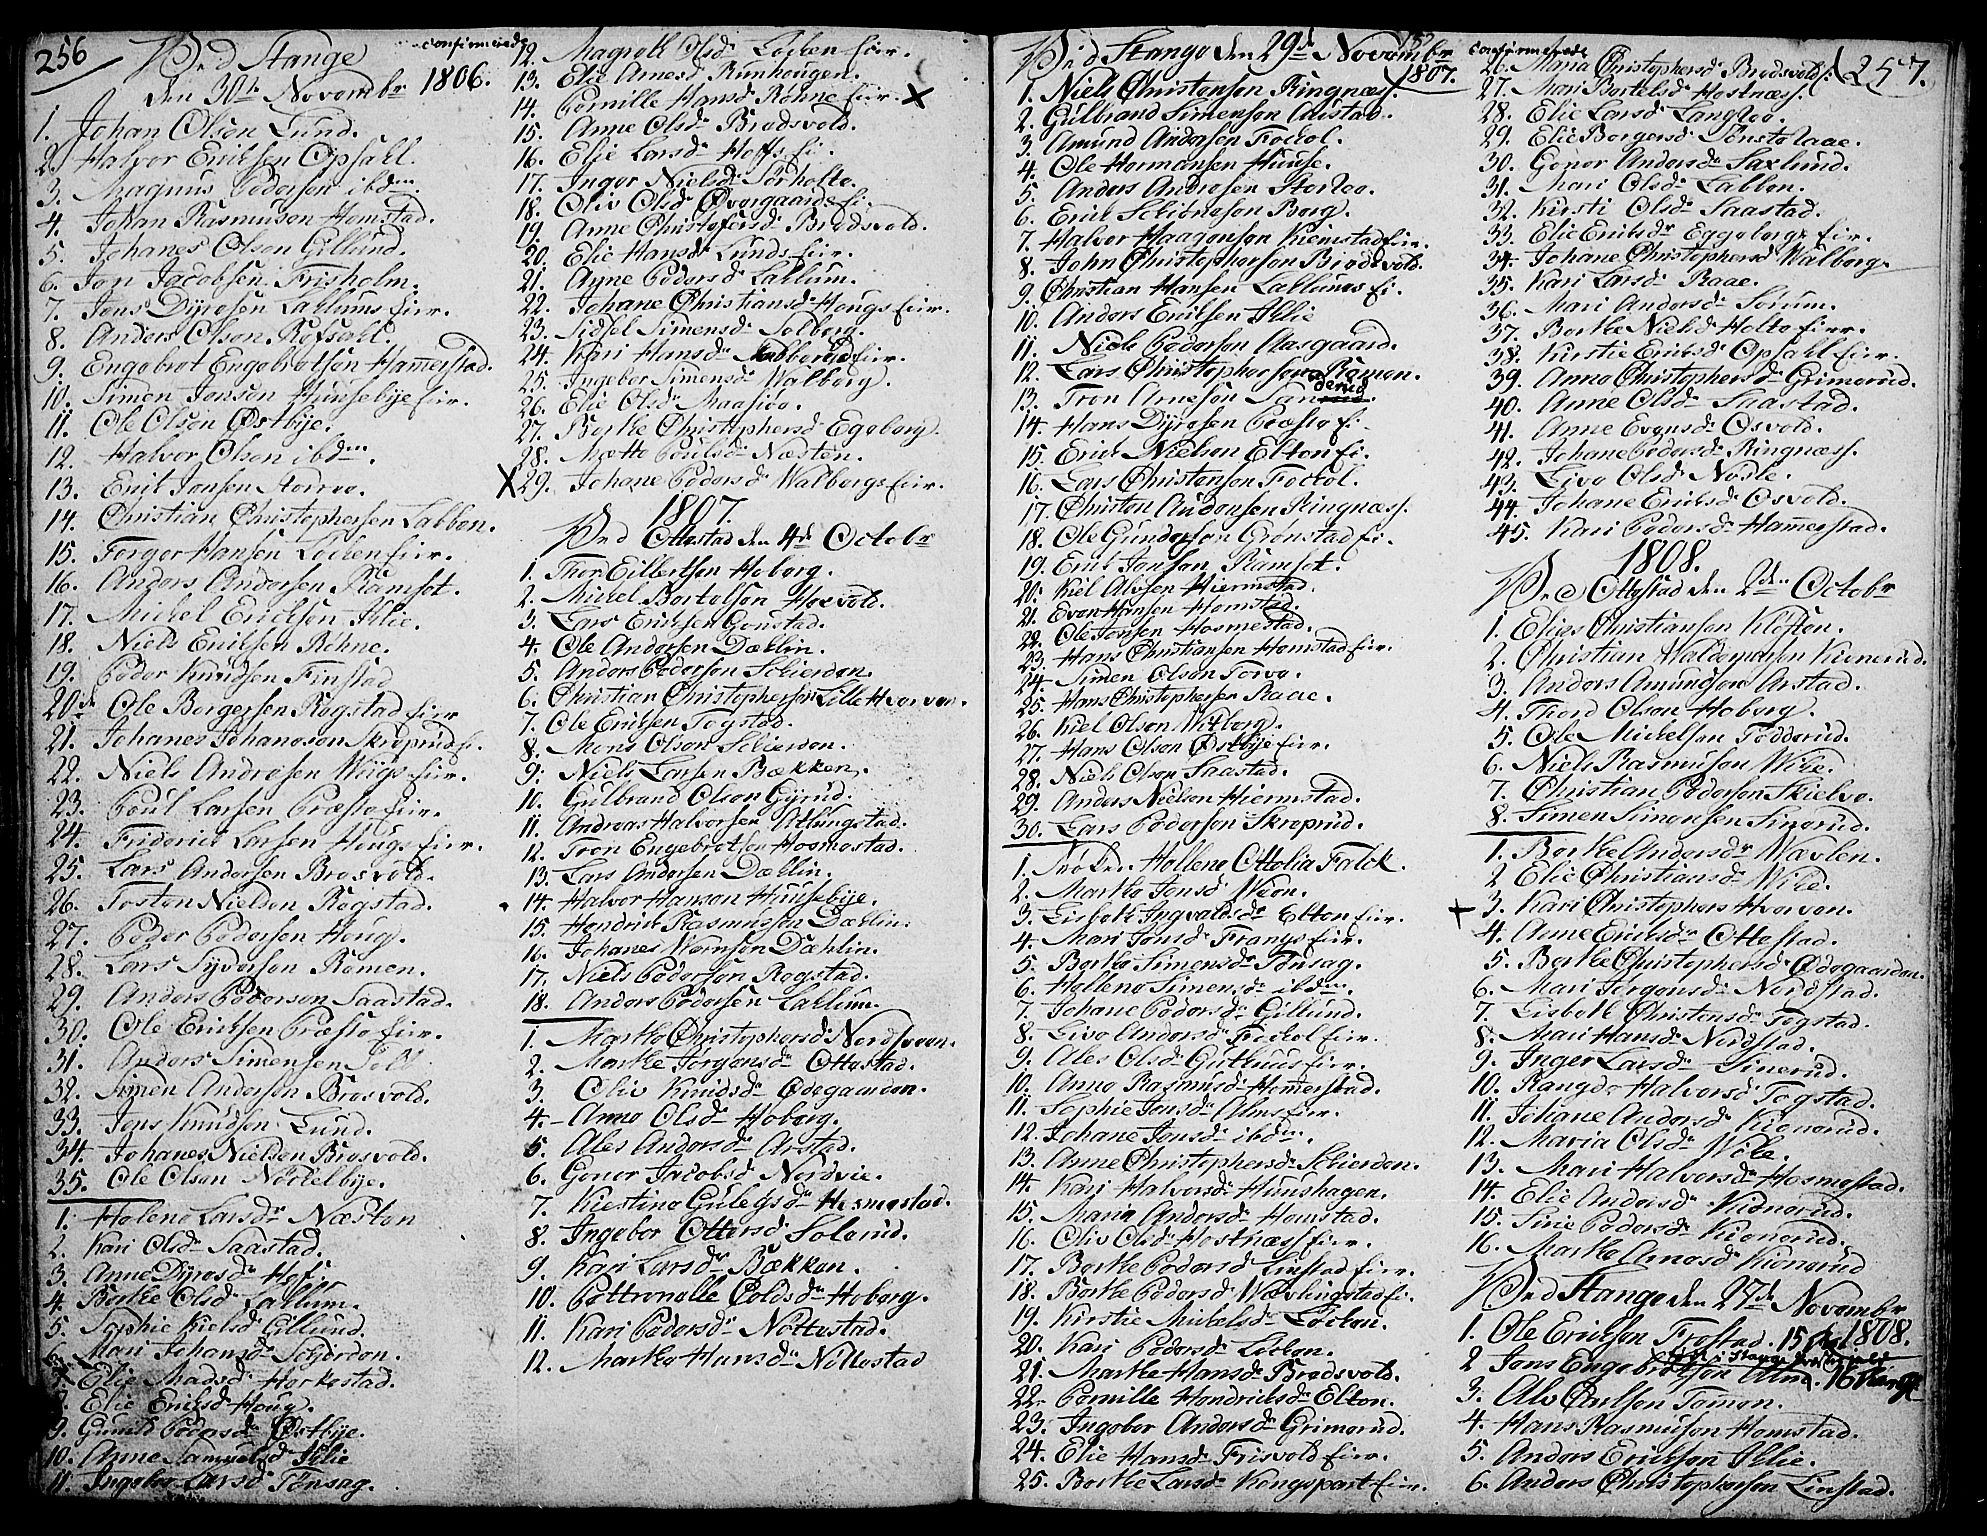 256
Ved Stange confirmerede
den 30te Novembr 1806.
1. Johan Olsen Lund.
2. Halvor Eriksen Opsahl.
3. Magnus Pedersen ibdm.
4. Johan Rasmusen Homstad.
5. Johanes Olsen Gillund.
6. Jon Jacobsen Frisholm.
7. Jens Dyresen Lallums Eier.
8. Anders Olsen Refsahl.
9. Engebret Engebretsen Hamerstad.
10. Simen Jonsen Huusebye Eier.
11. Ole Olsen Østbye.
12. Halvor Olsen ibdm.
13. Erik Jonsen Storroe.
14. Christian Christophersen Labben.
15. Torger Hansen Løcken Eier.
16. Anders Andersen Ramset.
17. Mickel Ericksen Ilie.
18. Niels Eriksen Røhne.
19. Peder Knudsen Finstad
20de Ole Borgersen Rogstad Eier
21. Johanes Johanesen Skreprud Ei.
22. Niels Andresen Wiigs Eier.
23. Poul Larsen Præste Eier.
24. Friderick Larsen Hougs Eier.
25. Lars Andersen Bresvold.
26. Tosten Nielsen Rogstad.
27. Peder Pedersen Houg.
28. Lars Syversen Romen.
29. Anders Pedersen Saastad.
30. Ole Eriksen Præste Eier.
31. Anders Simensen
32. Simen Andersen Bresvold.
33. Jens Knudsen Lund.
34. Johanes Nielsen Bresvold.
35. Ole Olsen Nøckelbye.
1. Helene Larsdr Næsten
2. Kari Olsdr Saastad.
3. Anne Dyresdr Hof Ei.
4. Berthe Olsd Lallum.
5. Sophie Kielsd Gillund.
6. Mari Johansdr Schierden.
7. Elie Madsd Horkestad.
8. Elie Eriksd Houg.
9. Gunild Pedersdr Østbye.
10. Anne Samuelsd Ilie
11. Ingebor Larsd Tønsag.
12. Magreth Olsd Løcken Eier.
13. Elie Arnesd Runhougen.
14. Pernille Hansd Røhne Eier. X
15. Anne Olsdr Bredsvold.
16. Elie Larsdr Hoffs Ei.
17. Inger Nielsdr Sørholte.
18. Oliv Olsdr Øvergaards Ei.
19. Anne Christofersd Bredsvold.
20. Elie Hansdr Lunds Eier.
21. Anne Pedersd Lallum.
22. Johane Christiansd Hougs Eier.
23. Sidsel Simensdr Solberg.
24. Kari Hansdr Eier.
25. Ingebor Simensdr Walberg.
26. Elie Olsdr
27. Berthe Christophersd Egeberg.
28. Mætte Poulsdr Næsten.
X 29. Johane Pedersdr Walbergs Eier.
1807.
Ved Ottestad den 4de Octobr
1. Thor Eillertsen Hoberg.
2. Mickel Bertelsen Hoxvold.
3. Lars Ericksen Gonstad.
4. Ole Andersen Dæhlin.
5. Anders Pedersen Schierden
6. Christian Christophersen Lille Hverven.
7. Ole Eriksen Togstad.
8. Mons Olsen Schierden.
9. Niels Larsen Bækken.
10. Gulbrand Olsen Gyrud.
11. Andreas Halvorsen Atlungstad.
12. Tron Engebretsen Hosmestad.
13. Lars Andersen Dæhlin.
14. Halvor Hansen Huusebye.
15. Hendrick Rasmusen Dæhlin.
16. Johanes Dæhlin.
17. Niels Pedersen Rogstad.
18. Anders Pedersen Lallum.
1. Marthe Christophersd Nordsveen.
2. Marthe Jørgensdr Ottestad.
3. Oliv Knudsdr Ødegaarden.
4. Anne Olsdr Hoberg.
5. Ales Andersdr Arstad.
6. Gonor Jacobsd Nordvie.
7. Kiestine Gulegsdr Hosmestad.
8. Ingebor Ottersd Solerud.
9. Kari Larsdr Bækken.
10. Pettronelle Poldsdr Hoberg.
11. Kari Pedersdr Nøttestad.
12. Marthe Hansdr Nøttestad
Ved Stange den 29de Novembr confirmerede
1807.
1. Niels Christensen Ringnæss.
2. Gulbrand Simensen
3. Amund Andersen Foctol.
4. Ole Hermansen Huuse.
5. Anders Andresen
6. Erik Schiønesen Berg.
7. Halvor Haagensen Kiemstad Eier.
8. John Christophersen Bredsvold.
9. Christian Hansen Lallums Ei.
10. Anders Eriksen Ilie
11. Niels Pedersen Aasgaard.
12. Lars Christophersen Romen.
13. Tron Arnesen Sanderud.
14. Hans Dyresen Præste Ei.
15. Erick Nielsen Elton Ei.
16. Lars Christensen Foctol.
17. Christen Andersen Ringnæss.
18. Ole Gundersen Grønstad Ei.
19. Erik Jonsen Ramset.
20. Kiel Alvsen Hiermstad.
21. Even Hansen Homstad.
22. Ole Jonsen Hosmestad.
23. Hans Christiansen Homstad Eier.
24. Simen Olsen Torve.
25. Hans Christophersen Raae.
26. Kiel Olsen Wikberg.
27. Hans Olsen Østbye Eier.
28. Niels Olsen Saastad.
29. Anders Nielsen Hiermstad.
30. Lars Pedersen Skreprud.
1. Hellene Ottelia Falck.
2. Marthe Jonsd Ween.
3. Lisbeth Ingvaldsdr Elton Eier.
4. Mari Jonsdr Frangs Eier.
5. Berthe Simensdr Tønsag.
6. Hellene Simensdr ibdm.
7. Johane Pedersdr Gillund.
8. Live Andersd Eier.
9. Ales Olsd Guthuus Eier.
10. Anne Rasmusd Homerstad.
11. Sophie Jonsdr Alms Eier.
12. Johane Jonsdr ibdm.
13. Anne Christophersdr Schierden.
14. Kari Halvorsdr Huushagen.
15. Maria Andersdr Homstad.
16. Oliv Olsdr Hostnæss Eier.
17. Berthe Pedersd Linstad Eier.
18. Berthe Pedersd Wævlingstad Ei.
19. Kirstie Mickelsdr Løcken.
20. Kari Pedersdr Løcken.
21. Marthe Hansdr Bredsvold.
22. Pernille Hendriksdr Elton.
23. Ingebor Andersdr Grimerud.
24. Elie Hansdr Frisvold Eier.
25. Berthe Larsdr Kongspart Eier.
257.
26. Maria Christophersd Bredsvold Ei.
27. Mari Bertelsd Hostnæss.
28. Elie Larsd Langtoe.
29. Elie Borgersd
30. Gonor Andersdr Saxlund.
31. Mari Olsdr Labben.
32. Kirsti Olsdr Saastad.
33. Elie Eriksdr Eggebergs Eier.
34. Johane Christophersd Walberg.
35. Kari Larsdr Raae.
36. Mari Andersdr Sørum.
37. Berthe Nielsd Holte Eier.
38. Kirstie Eriksdr Opsahl Eier.
39. Anne Christophersdr Grimerud.
40. Anne Olsdr Saastad.
41. Anne Evensdr Osvold.
42. Johane Pedersdr Ringnæss.
43. Live Olsdr Nøsle.
44. Johane Eriksdr Osvold.
45. Kari Pedersdr Hamerstad.
1808.
Ved Ottestad den 2den Octobr
1. Elias Christiansen Kløften.
2. Christian Waldemarsen Kienerud.
3. Anders Amundsen Arstad.
4. Thord Olsen Hoberg.
5. Ole Mickelsen Fodderud.
6. Niels Rasmusen Wike.
7. Christian Pedersen Skielve.
8. Simen Simensen Sinerud.
1. Berthe Andersdr Wævlen.
2 Elie Christiansdr Wike.
+ 3. Kari Christophers Hverven.
4. Anne Eriksdr Ottestad.
5. Berthe Christophersdr Ødegaarden.
6. Mari Jørgensdr Nordstad.
7. Lisbeth Christensdr Togstad.
8. Mari Hansdr Nordstad.
9. Inger Larsdr Sinerud.
10. Rangdi Halvorsd Togstad.
11. Johane Andersdr Kienerud.
12. Maria Olsdr Wike.
13. Mari Halvorsdr Hosmestad.
14. Elie Andersd Kienerud.
15. Sirie Pedersdr Kienerud.
16. Marthe Arnesd Kienerud
Ved Stange den 27de Novembr
1808.
1. Ole Ericksen Frestad. 15
2 Jens Engebretsen Alm. 16
3. Alv Poulsen Tomen.
4. Hans Rasmusen Homstad.
5. Anders Eriksen Ilie.
6. Anders Christophersen Linstad.